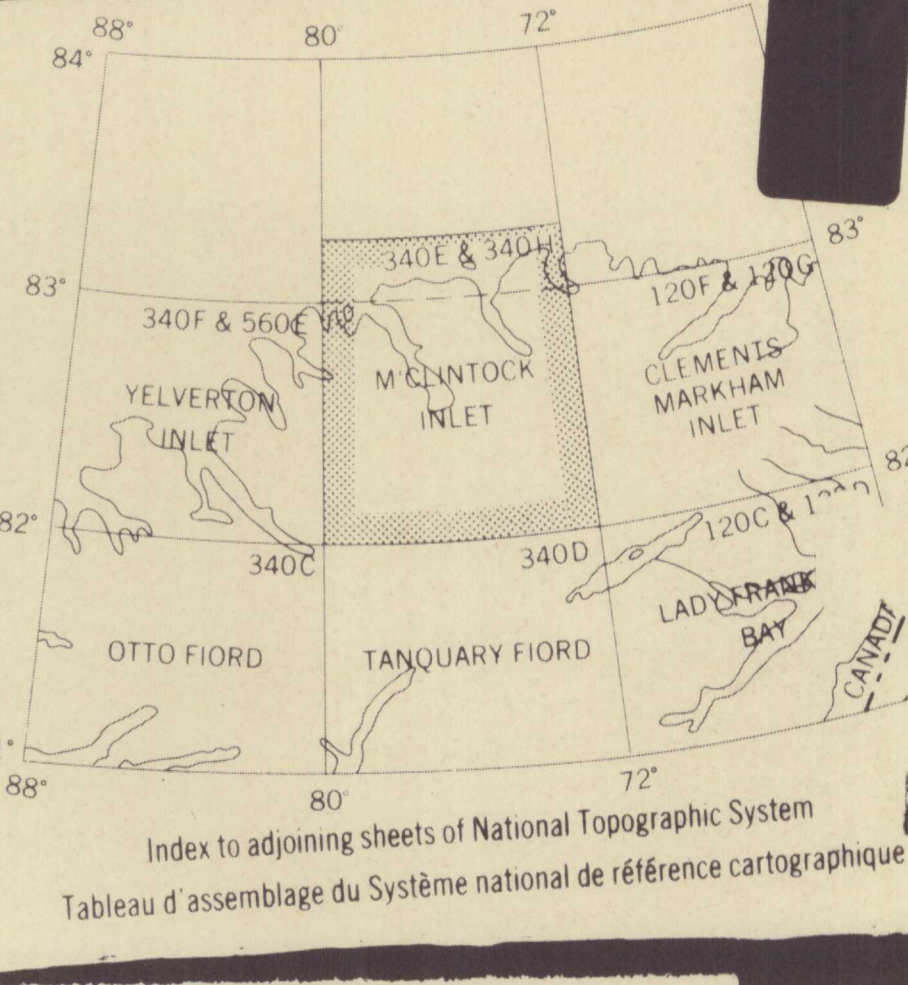 88°
80°
72°
84°
83°
83°
340E & 340H
120F & 120G
340F & 560E
YELVERTON
INLET
M'CLINTOCK
INLET
CLEMENTS
MARKHAM
INLET
82°
340C
340D
120C &
OTTO FIORD
TANQUARY FIORD
LADY FRANK
BAY
CANAD
88°
80°
72°
Index to adjoining sheets of National Topographic System
Tableau d'assemblage du Système national de référence cartographique